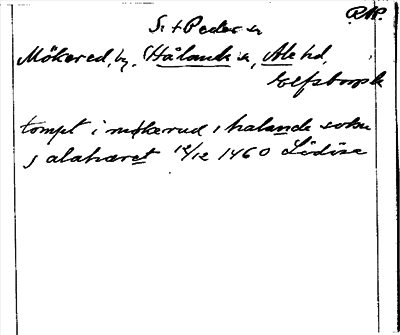 RAP.
S:t Peders sn
Mökared, by, Hålands sn, Ale hd,
Elfsborgs l.
tompt i mökerud i halande sokn
j alahæret 12/12 1460 Lödöse